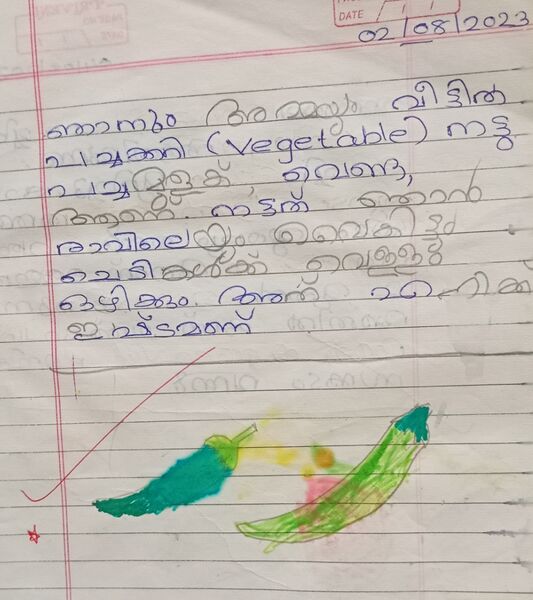 DATE
02/08/2023
ഞാനും അമ്മയും വീട്ടിൽ
പച്ചക്കറി (vegetable) നട്ടു
പച്ചമുളക്, വെണ്ട,
ആണ് നട്ടത് ഞാൻ
രാവിലെയും വൈകിട്ടും
ചെടികൾക്ക് വെള്ളം
ഒഴിക്കും. അത് എനിക്ക്
ഇഷ്ടമാണ്